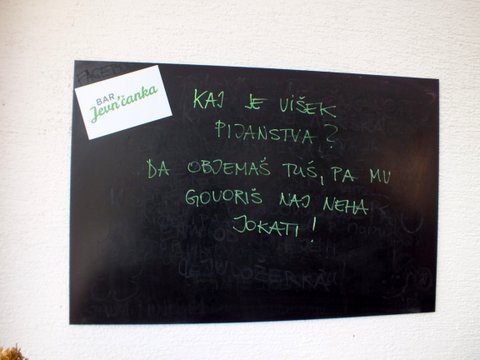 BAR
Jevn'čanka
KAJ JE VIŠEK
PIJANSTVA?
DA OBJEMAŠ TUŠ, PA MU
GOVORIŠ NAJ NEHA
JOKATI!